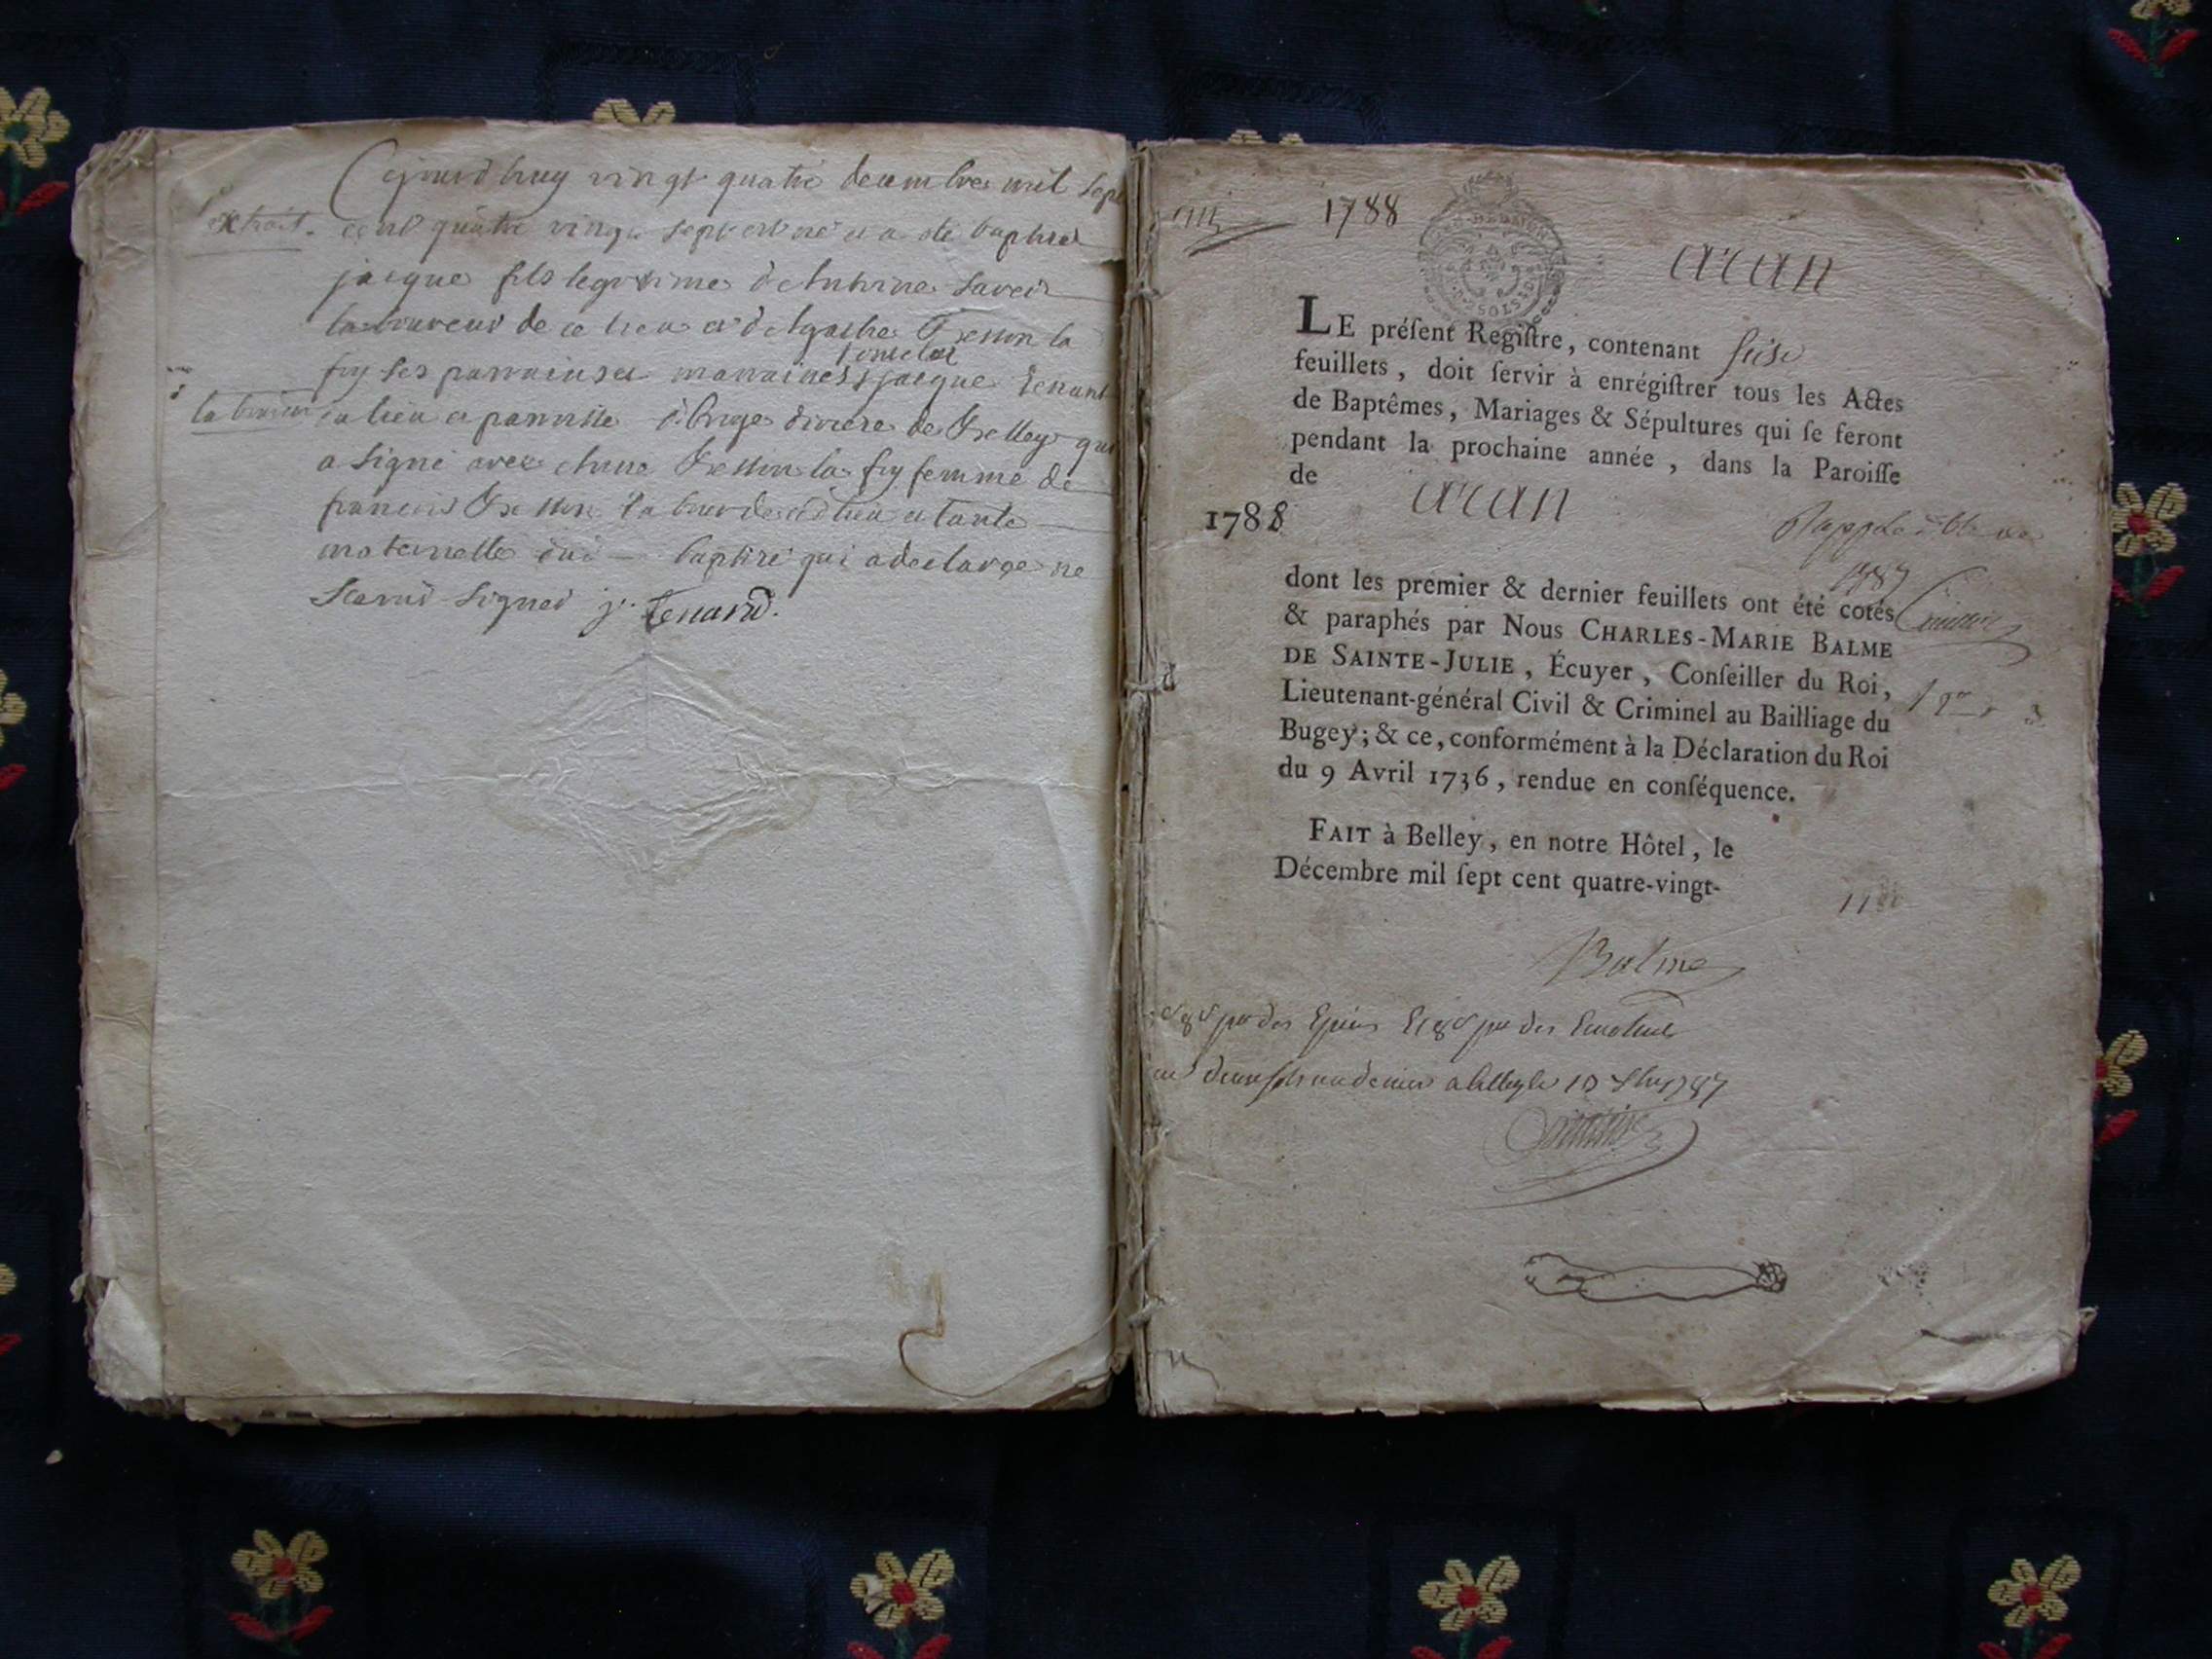 Cejourd huy vingt quatre decembre mil sept
extrait. cent quatre vingt sept est né et a été baptisé
jacque fils legitime d'Antoine
laboureur de ce lieu et d'Agathe la
foy ses parrains et marraines jacque tenant
du lieu et paroisse diocese de Belley qui
a signé avec la foy femme de
francois du lieu et tante
maternelle du baptisé qui a declaré ne
Scavoir signer j. tenard.
1788
aran
LE préſent Regiſtre, contenant seise
feuillets, doit ſervir à enrégiſtrer tous les Actes
de Baptêmes, Mariages & Sépultures qui ſe feront
pendant la prochaine année, dans la Paroiſſe
de aran
1788
1787
dont les premier & dernier feuillets ont été cotés
& paraphés par Nous CHARLES-MARIE BALME
DE SAINTE-JULIE, Écuyer, Conſeiller du Roi,
Lieutenant-général Civil & Criminel au Bailliage du
Bugey; & ce, conformément à la Déclaration du Roi
du 9 Avril 1736, rendue en conſéquence.
FAIT à Belley, en notre Hôtel, le
Décembre mil ſept cent quatre-vingt-
Balme
a belley le 10 1787